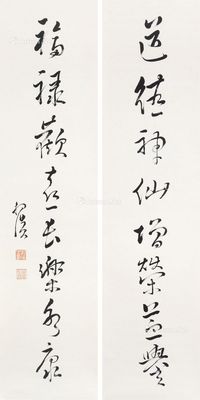 道德神仙增榮益譽
福祿歡喜長樂永康